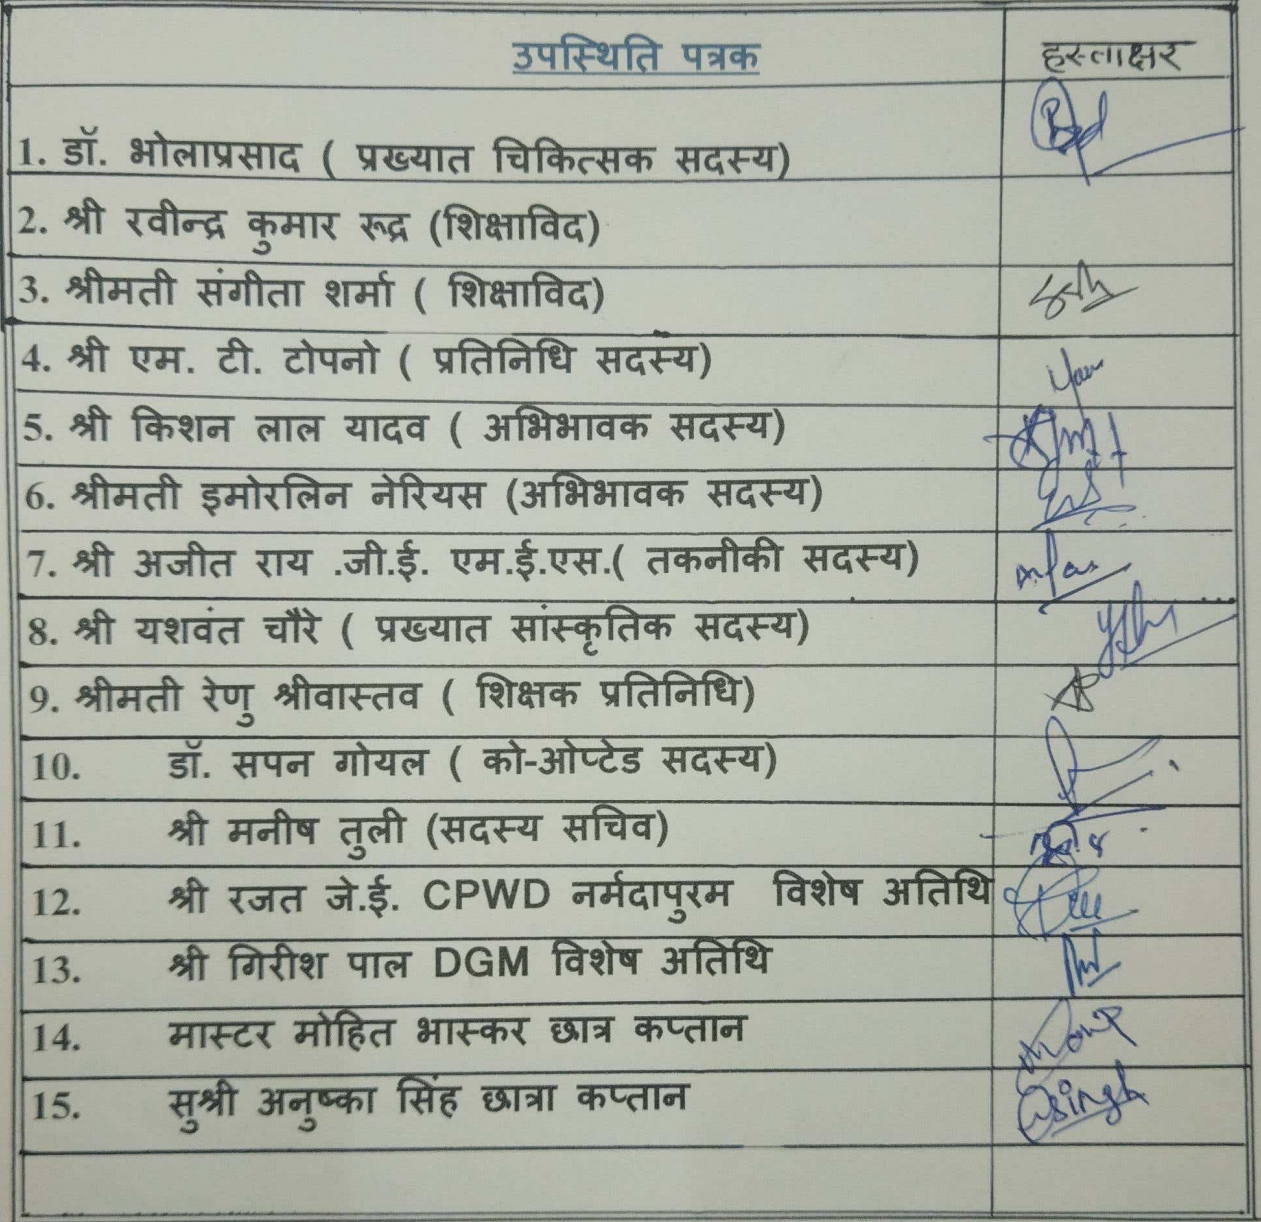 उपस्थिति पत्रक हस्ताक्षर
1. डॉ. भोलाप्रसाद ( प्रख्यात चिकित्सक सदस्य)
2. श्री रवीन्द्र कुमार रूद्र (शिक्षाविद)
3. श्रीमती संगीता शर्मा ( शिक्षाविद)
4. श्री एम. टी. टोपनो ( प्रतिनिधि सदस्य)
5. श्री किशन लाल यादव ( अभिभावक सदस्य)
6. श्रीमती इमोरलिन नेरियस (अभिभावक सदस्य)
7. श्री अजीत राय .जी.ई. एम.ई.एस.( तकनीकी सदस्य)
8. श्री यशवंत चौरे ( प्रख्यात सांस्कृतिक सदस्य)
9. श्रीमती रेणु श्रीवास्तव ( शिक्षक प्रतिनिधि)
10. डॉ. सपन गोयल ( को-ओप्टेड सदस्य)
11. श्री मनीष तुली (सदस्य सचिव)
12. श्री रजत जे.ई. CPWD नर्मदापुरम विशेष अतिथि
13. श्री गिरीश पाल DGM विशेष अतिथि
14. मास्टर मोहित भास्कर छात्र कप्तान
15. सुश्री अनुष्का सिंह छात्रा कप्तान